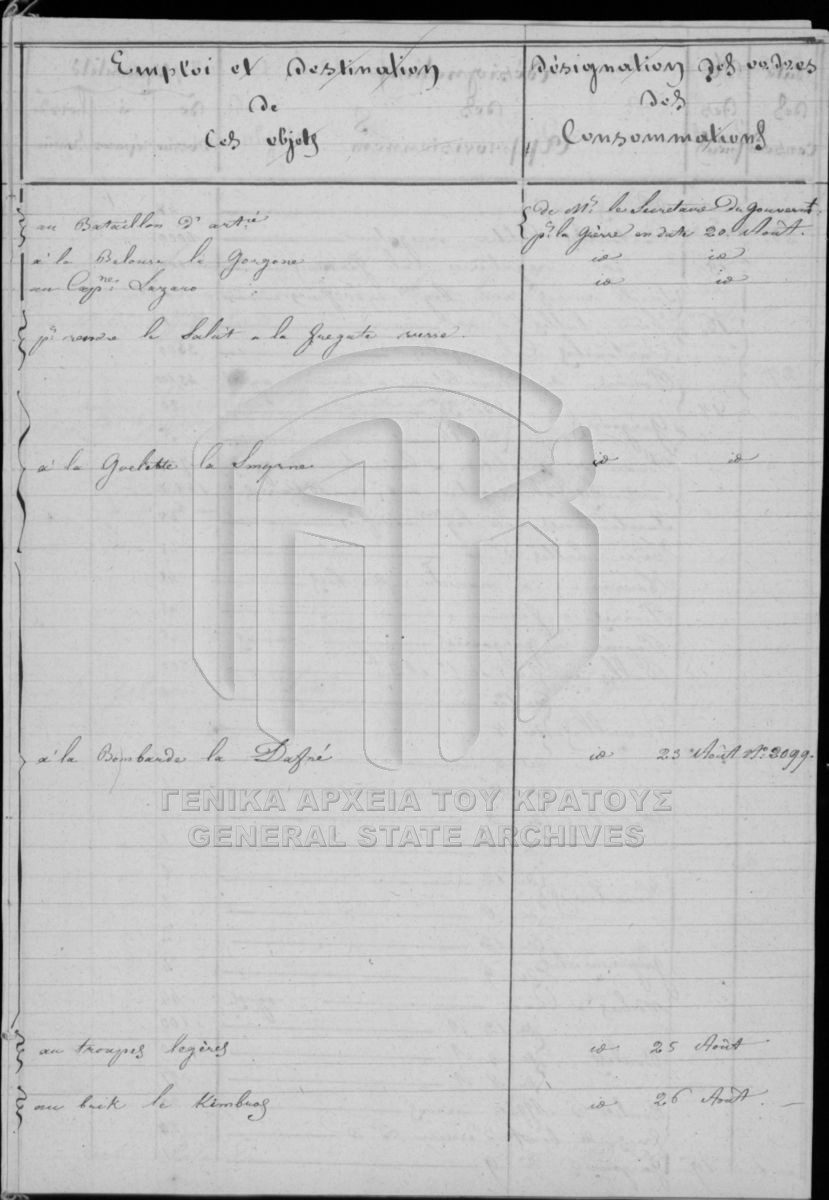 Emploi et Destination
de
Ces objets
Désignation des ordres
des
Consommations
au Bataillon d'art.ie
de Mr. le Secretaire du Gouvernt.
pr. la Gùerre en date 20 Août.
à la la Gorgone id id
au Capne. Lazaro id id
pr. rendre le Salut a la fregate russe.
à la Goelette la Smyrne id id
à la Bombarde la Dafné id 23 Août No. 3099.
au troupes legères id 25 Août
au brik le Kimbros id 26 Août.
ΓΕΝΙΚΑ ΑΡΧΕΙΑ ΤΟΥ ΚΡΑΤΟΥΣ
GENERAL STATE ARCHIVES